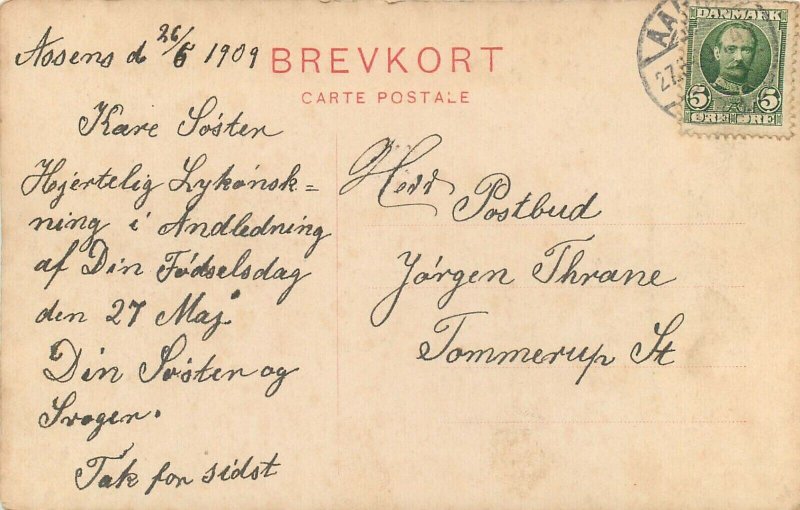 Assens d 26/5 1909
BREVKORT
CARTE POSTALE
Kære Søster
Hjertelig Lykønsk=
ning i Andledning
af Din Fødselsdag
den 27 Maj
Din Søster og
Svoger.
Tak for sidst
Postbud
Jörgen Thrane
Tommerup St
DANMARK
5 5
ØRE ØRE
27.